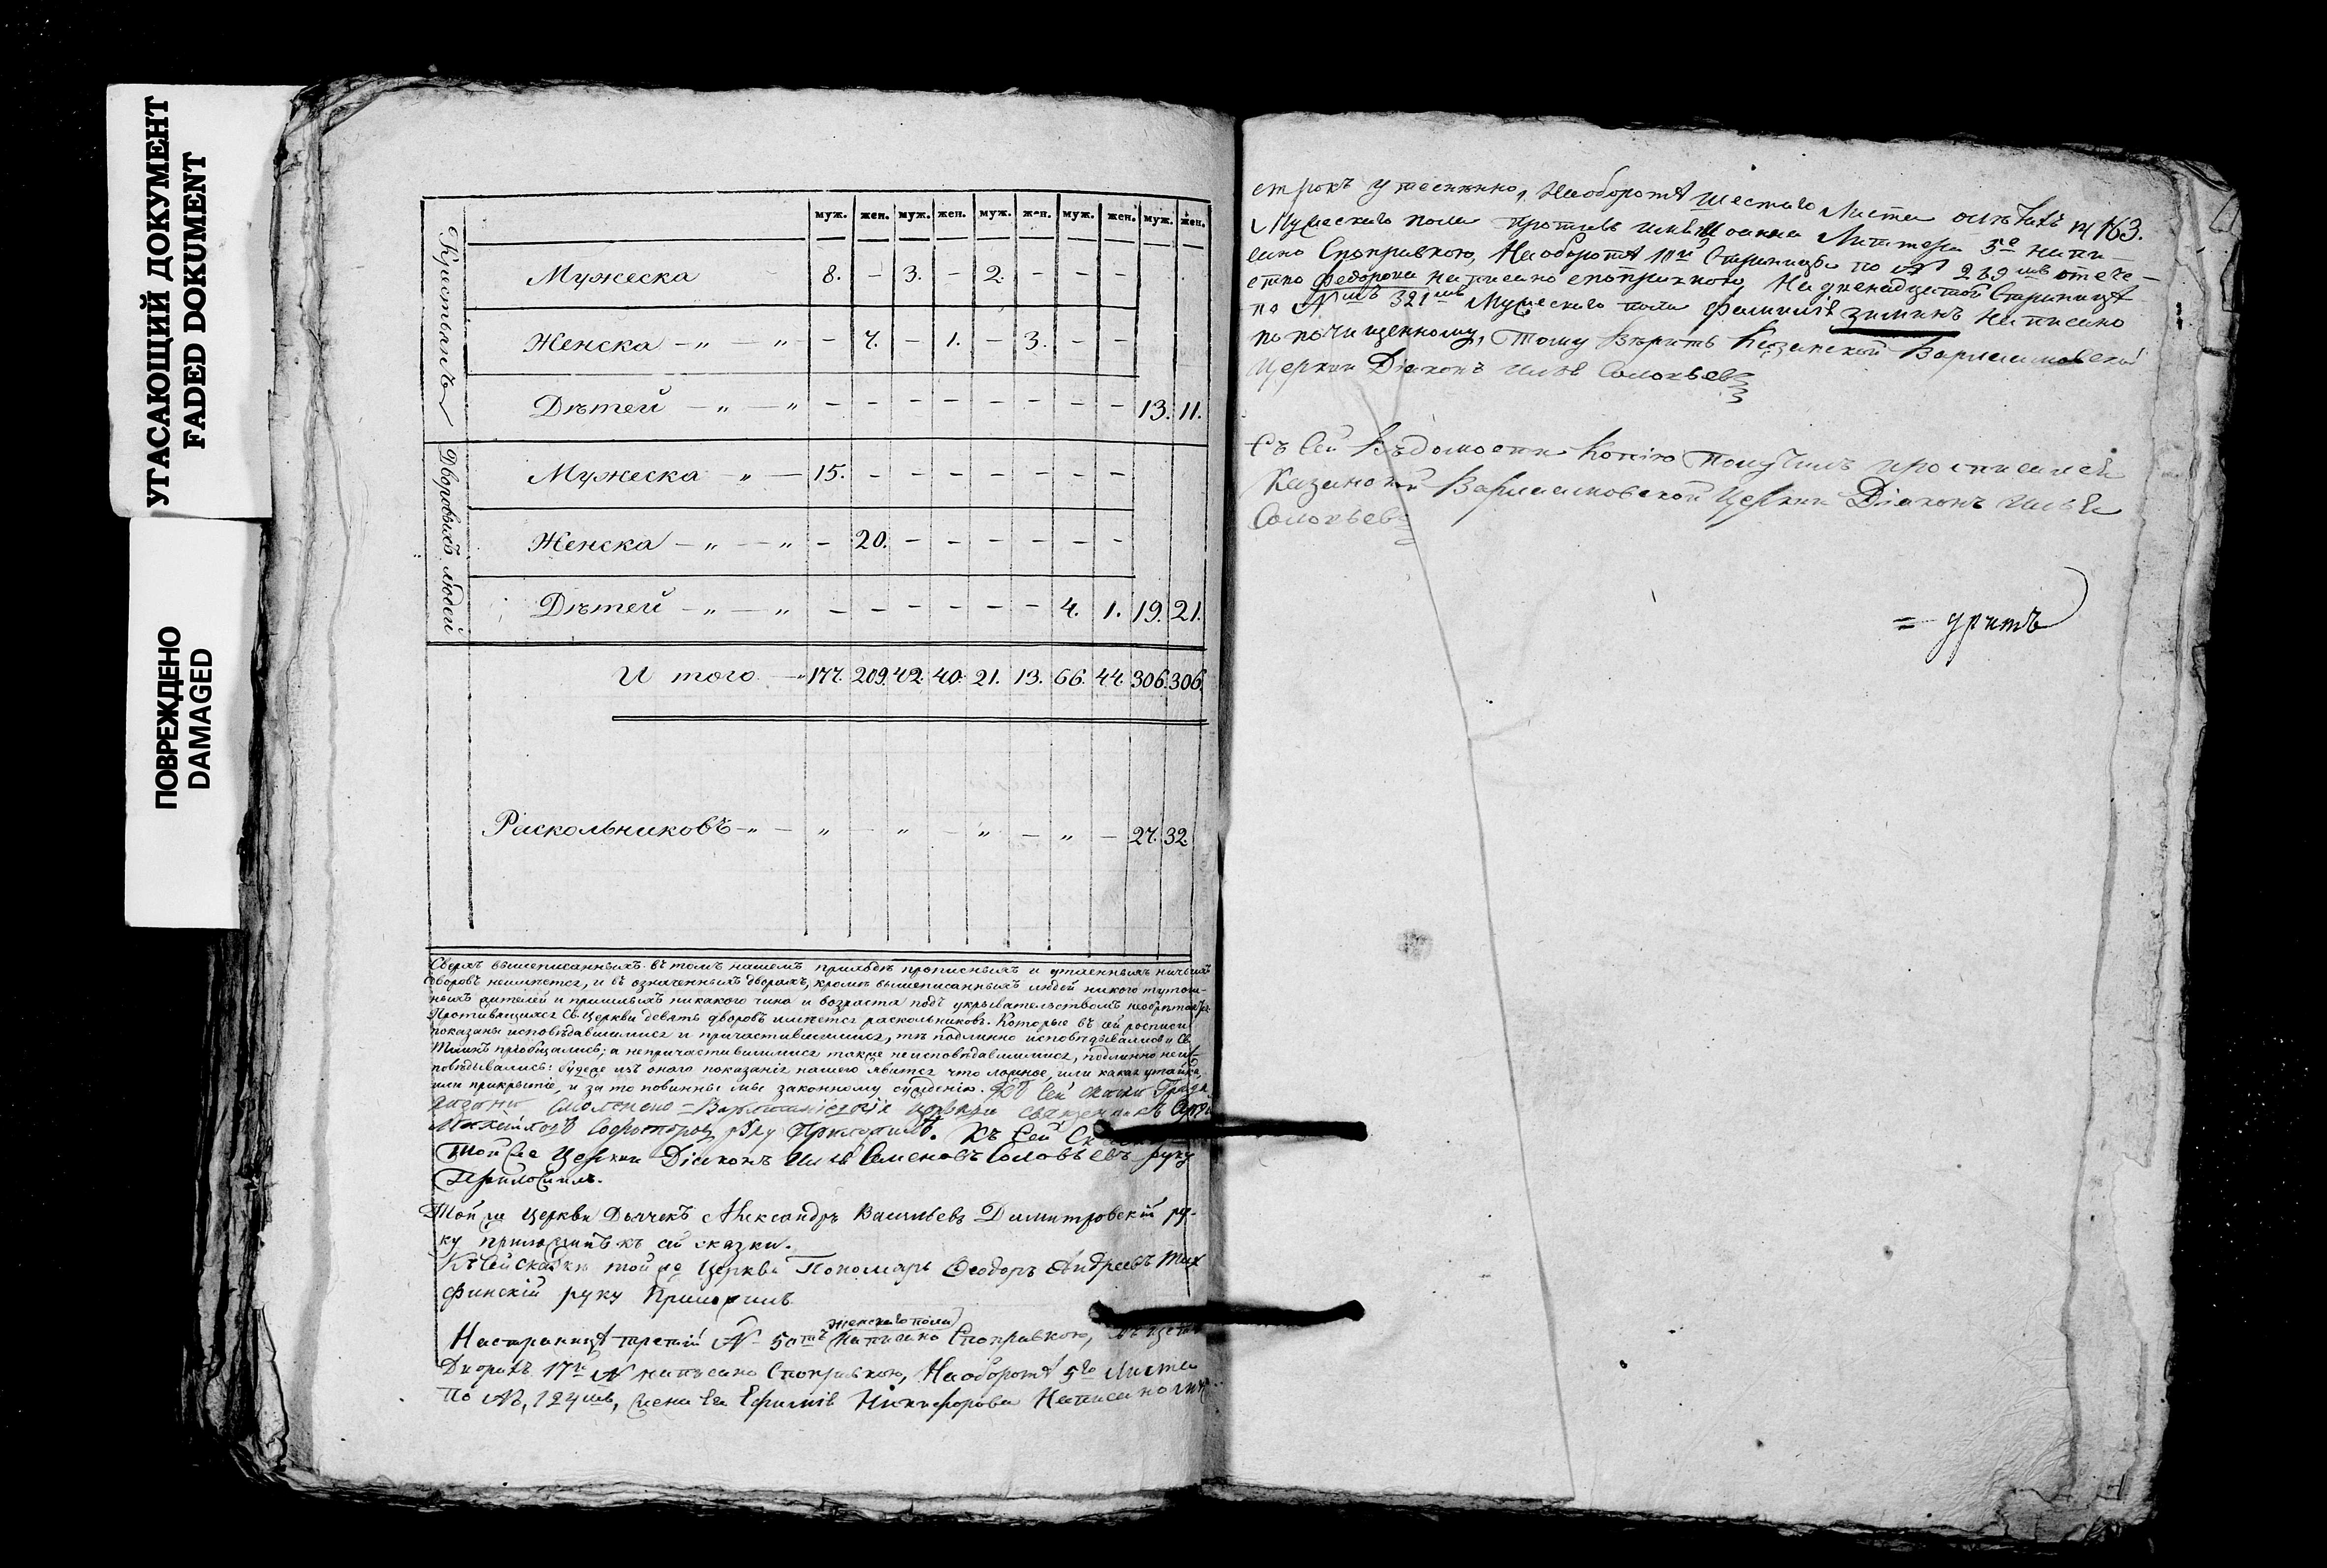 УГАСАЮЩИЙ ДОКУМЕНТ
FADED DOKUMENT
ПОВРЕЖДЕНО
DAMAGED
муж. жен. муж. жен. муж. жен. муж. жен. муж. жен.
Крестьянъ
Мужеска 8. – 3. – 2. – – –
Женска – „ – „ – 7. – 1. – 3. – –
Дѣтей – „ – „ – – – – – – – – 13. 11.
Дворовыхъ людей
Мужеска – „ – 15. – – – – – – –
Женска – „ – „ – 20. – – – – – –
Дѣтей – „ – „ – – – – – – 4. 1. 19. 21.
И того – 177. 209. 42. 40. 21. 13. 66. 44. 306. 306.
Раскольниковъ – „ – „ – „ – „ – „ – 27. 32
Сверхъ вышеписанныхъ въ томъ нашемъ приходѣ прописныхъ и утаенныхъ ничьихъ
дворовъ неимѣется, и въ означенныхъ дворахъ, кромѣ вышеписанныхъ людей никого тутош-
нихъ жителей и пришлыхъ никакого чина и возраста подъ укрывательствомъ
Противящихся Св. церкви девять дворовъ имѣется раскольниковъ. Которые въ сей росписи
показаны исповѣдавшимися и причастившимися, тѣ подлинно исповѣдывались и Св.
Таинъ пріобщались; а непричастившимися также неисповѣдавшимися, подлинно неис-
повѣдывались: будеже изъ оного показанія нашего явится что ложное, или какая утайка,
или прикрытіе, и за то повинны мы законному сужденію. Къ сей сказкѣ
церкви священникъ
руку приложилъ. Къ сей
Той же Церкви Діаконъ Илья Семеновъ Соловьевъ руку
Приложилъ.
Той же церкви Дьячекъ Александръ Васильевъ Димитровскій ру-
ку приложилъ къ сей сказки.
Къ сей сказкѣ той же Церкви Пономарь Ѳеодоръ Андреевъ Тих
финскій руку Приложилъ
женскаго пола
На страницѣ третій № 50мъ написано Споправкою,
Дворахъ 17й № написано споправкою, На оборотѣ 5го Листа
По №, 124мъ, жена его Ефимія Никифорова Написано
строкъ утесненно, На оборотѣ шестаго Листа №163.
Мужескаго пола противъ 5е напи-
сано Споправкою, На оборотѣ 11й Страницы по № 289мъ отече-
ство Федорова написано споправкою, На двенадцатой Страницѣ
по №мъ 321мъ Мужескаго пола фамилія Зиминъ написано
по почищенному, Тому Вѣритъ Казанской Варлаамовской
Церкви Діаконъ Илья Соловьевъ
Съ сей Вѣдомости Копію Получилъ
Казанской Варлаамовской Церкви Діаконъ Илья
Соловьевъ